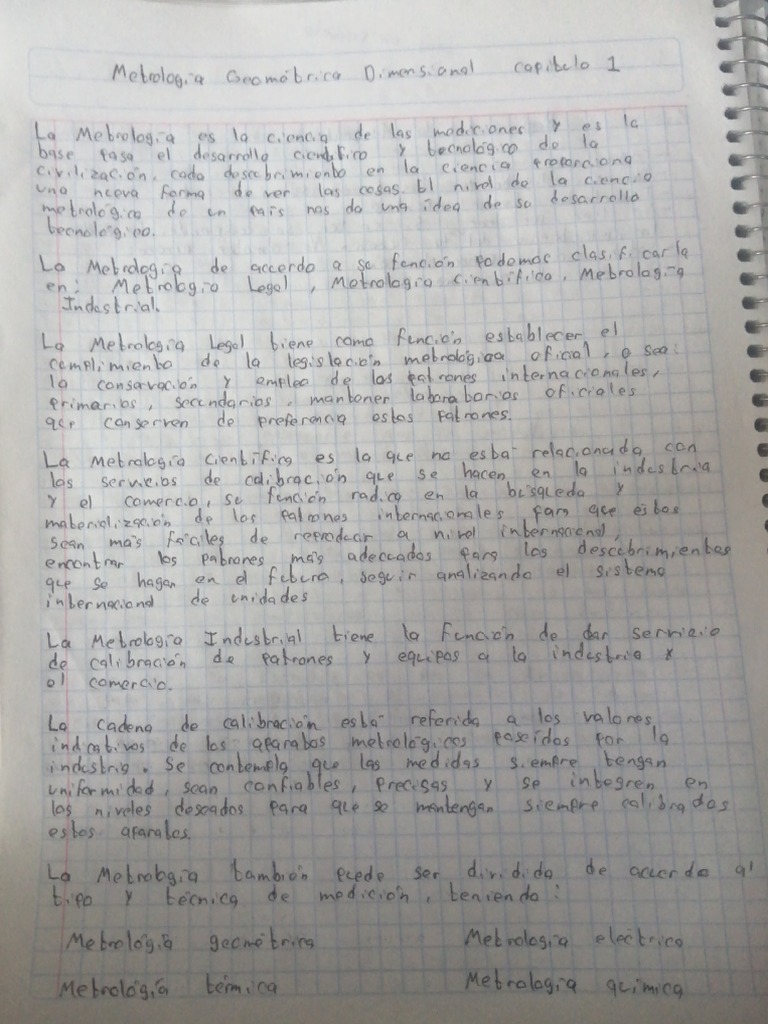 Metrología Geométrica Dimensional capitulo 1
La Metrología es la ciencia de las mediciones y es la
base para el desarrollo científico y tecnológico de la
civilización, cada descubrimiento en la ciencia proporciona
una nueva forma de ver las cosas. El nivel de la ciencia
metrológica de un país nos da una idea de su desarrollo
tecnológico.
La Metrología de acuerdo a su función podemos clasificarla
en: Metrología Legal, Metrología científica, Metrología
Industrial.
La Metrología Legal tiene como función establecer el
cumplimiento de la legislación metrológica oficial, o sea:
la conservación y empleo de los patrones internacionales,
primarios, secundarios, mantener laboratorios oficiales
que conserven de preferencia estos patrones.
La Metrología Científica es la que no está relacionada con
los servicios de calibración que se hacen en la industria
y el comercio, su función radica en la búsqueda y
materialización de los patrones internacionales para que éstos
sean más fáciles de reproducir a nivel internacional,
encontrar los patrones más adecuados para los descubrimientos
que se hagan en el futuro, seguir analizando el sistema
internacional de unidades
La Metrología Industrial tiene la función de dar servicio
de calibración de patrones y equipos a la industria y
al comercio.
La cadena de calibración está referida a los valores
indicativos de los aparatos metrológicos poseídos por la
industria. Se contempla que las medidas siempre tengan
uniformidad, sean confiables, precisas y se integren en
los niveles deseados para que se mantengan siempre calibrados
estos aparatos.
La Metrología también puede ser dividida de acuerdo al
tipo y técnica de medición, teniendo:
Metrología geométrica Metrología eléctrica
Metrología térmica Metrología química